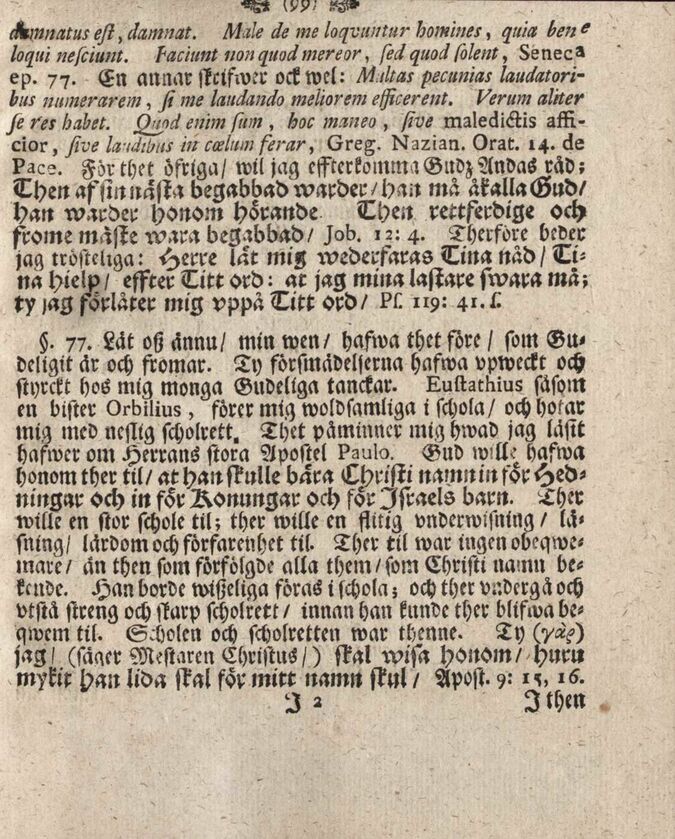 (99)
damnatus est, damnat. Male de me loqvuntur homines, quia bene
loqui nesciunt. Faciunt non quod mereor, sed quod solent, Seneca
ep. 77. En annar skrifwer ock wel: Multas pecunias laudatori-
bus numerarem, si me laudando meliorem efficerent. Verum aliter
se res habet. Quod enim sum, hoc maneo, sive maledictis affi-
cior, sive laudibus in cœlum ferar, Greg. Nazian. Orat. 14. de
Pace. För thet öfriga/ wil jag effterkomma Gudz Andas råd;
Then af sin nästa begabbad warder/ han må åkalla Gud/
han warder honom hörande. Then rettferdige och
frome måste wara begabbad/ Job. 12: 4. Therföre beder
jag trösteliga: Herre låt mig wederfaras Tina nåd/ Ti-
na hielp/ effter Titt ord: at jag mina lastare swara må;
ty jag förlåter mig vppå Titt ord/ Ps. 119: 41. s.
§. 77. Låt oß ännu/ min wen/ hafwa thet före/ som Gu-
deligit är och fromar. Ty försmädelserna hafwa vpweckt och
styrckt hos mig monga Gudeliga tanckar. Eustathius såsom
en bister Orbilius, förer mig woldsamliga i schola/ och hotar
mig med neslig scholrett. Thet påminner mig hwad jag läsit
hafwer om Herrans stora Apostel Paulo. Gud wille hafwa
honom ther til/ at han skulle bära Christi namn in för Hed-
ningar och in för Konungar och för Israels barn. Ther
wille en stor schole til; ther wille en flitig vnderwisning/ lä-
sning/ lärdom och förfarenhet til. Ther til war ingen obeqwe-
mare/ än then som förfölgde alla them/ som Christi namn be-
kende. Han borde wißeliga föras i schola; och ther vndergå och
vtstå streng och skarp scholrett/ innan han kunde ther blifwa be-
qwem til. Scholen och scholretten war thenne. Ty (γὰρ)
jag/ (säger Mestaren Christus/) skal wisa honom/ huru
mykit han lida skal för mitt namn skul/ Apost. 9: 15, 16.
I 2 I then